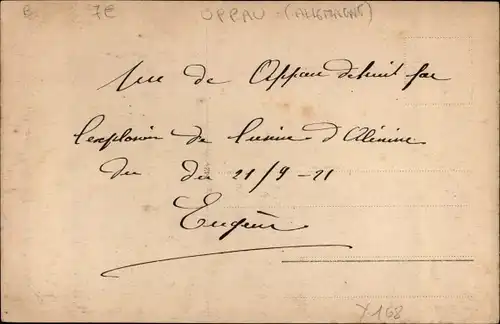 7E OPPAU - (ALLEMAGNE)
Vue de Oppau détruit par
l'explosion de l'usine d'
du du 21/9-21
Eugène
X168